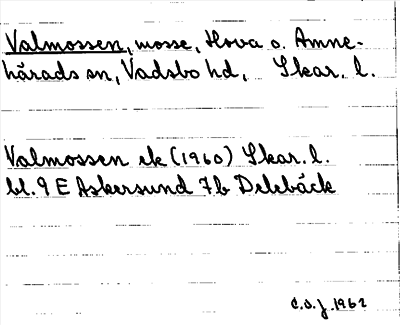 Valmossen, mosse, Hova o. Amne-
härads sn, Vadsbo hd, Skar. l.
Valmossen ek (1960) Skar. l.
bl. 9 E Askersund 7b Delebäck
C.O.J. 1962